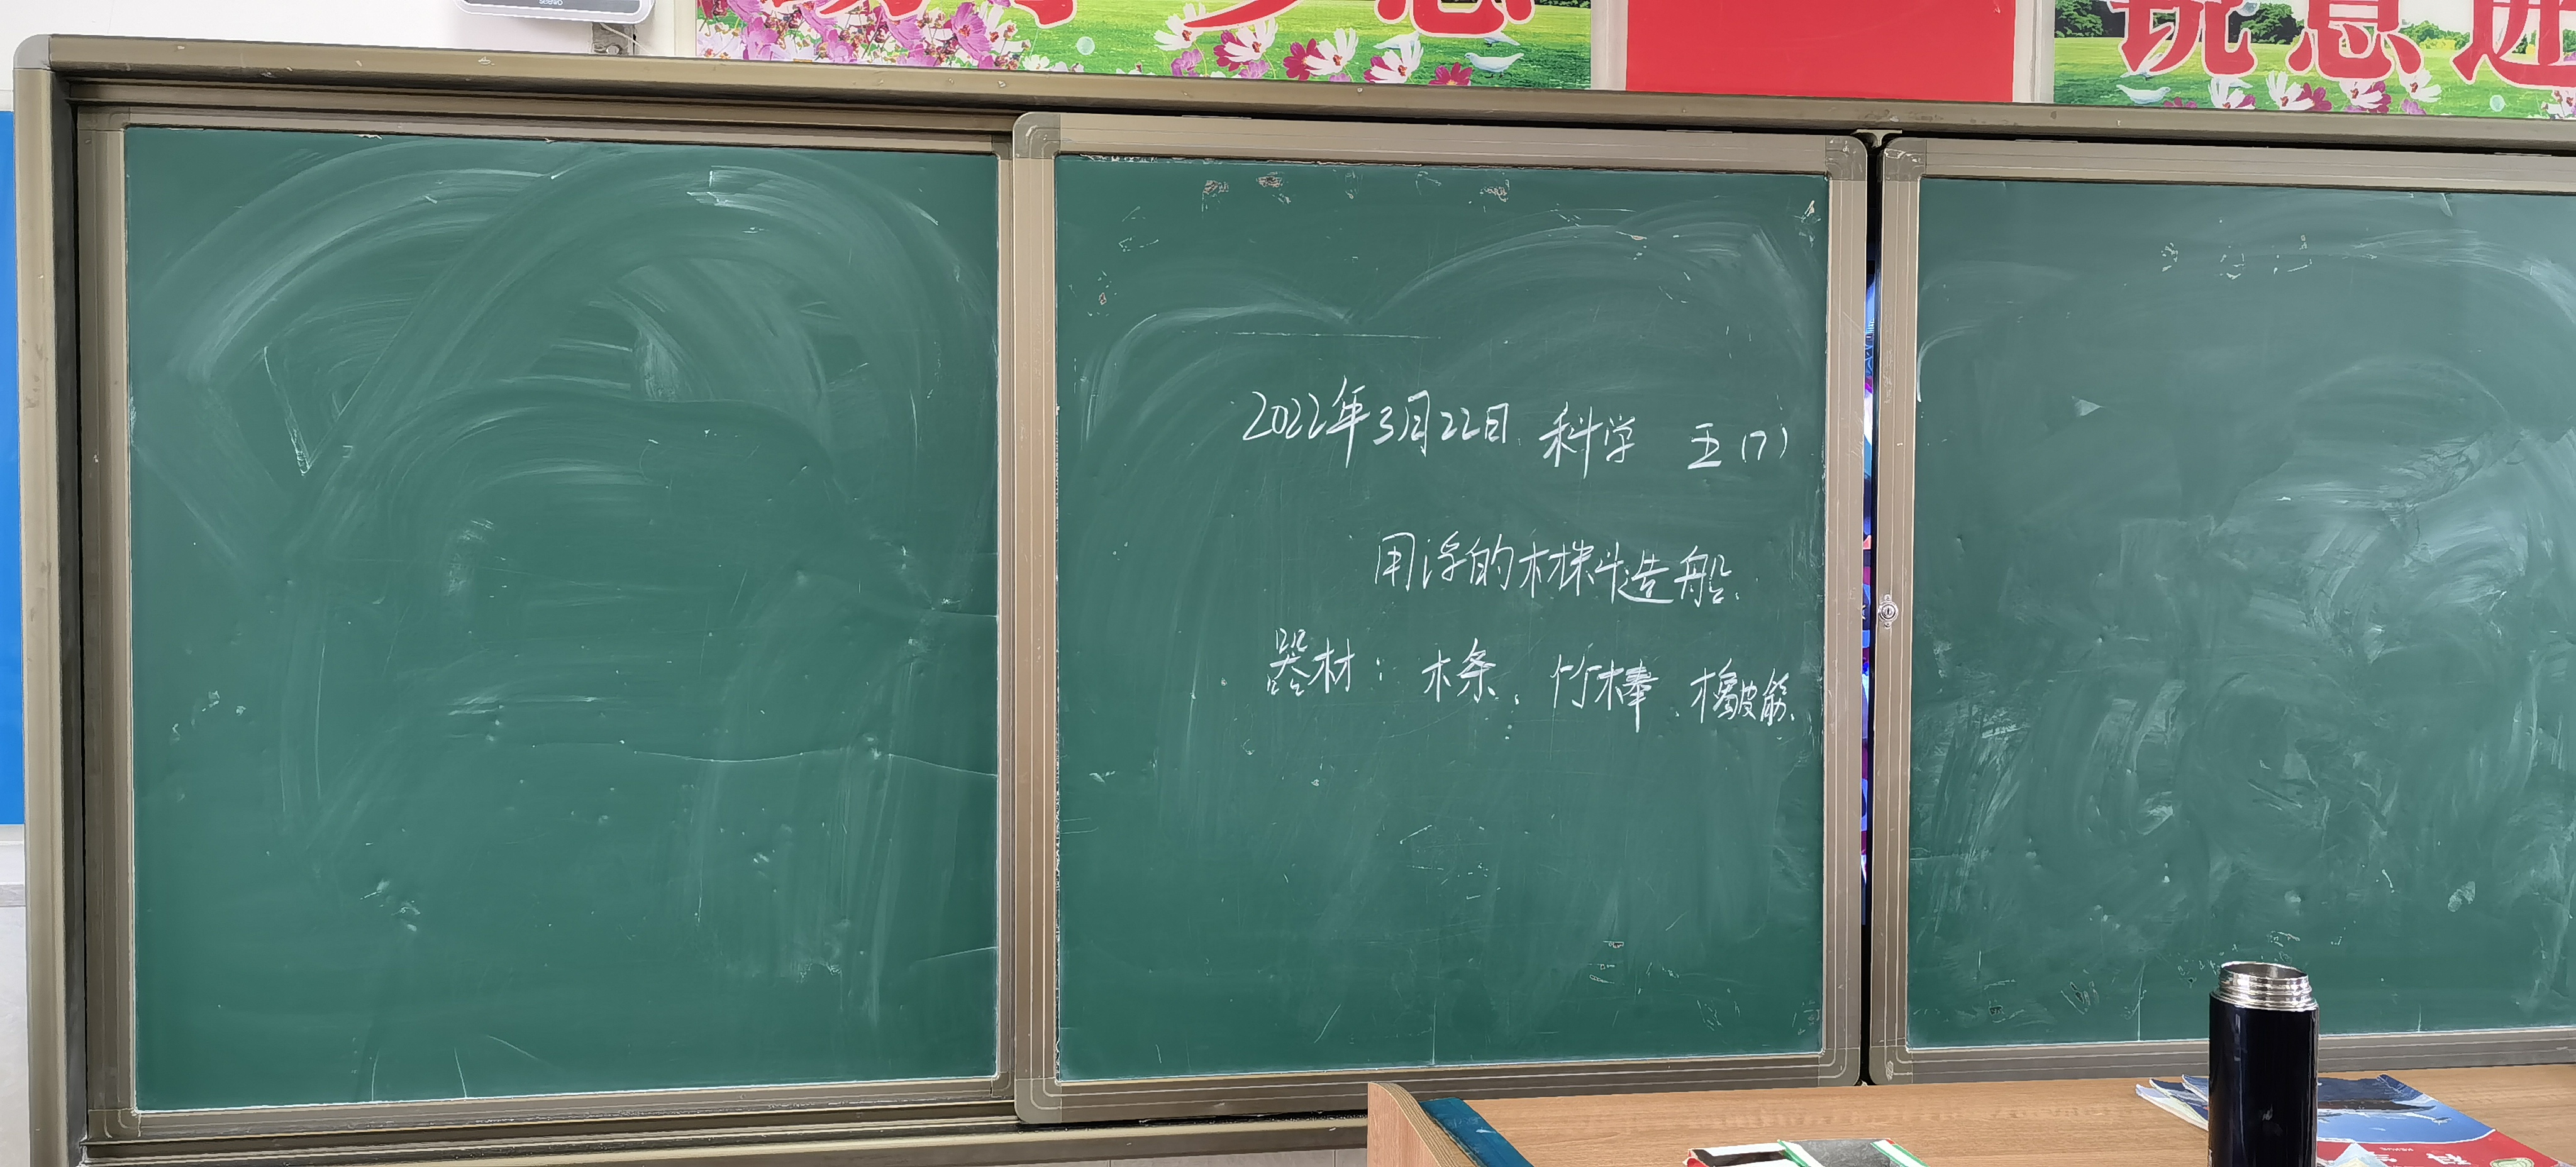 锐意进
2022年3月22日 科学 五(7)
用浮的材料造船.
器材: 木条、竹棒、橡皮筋、